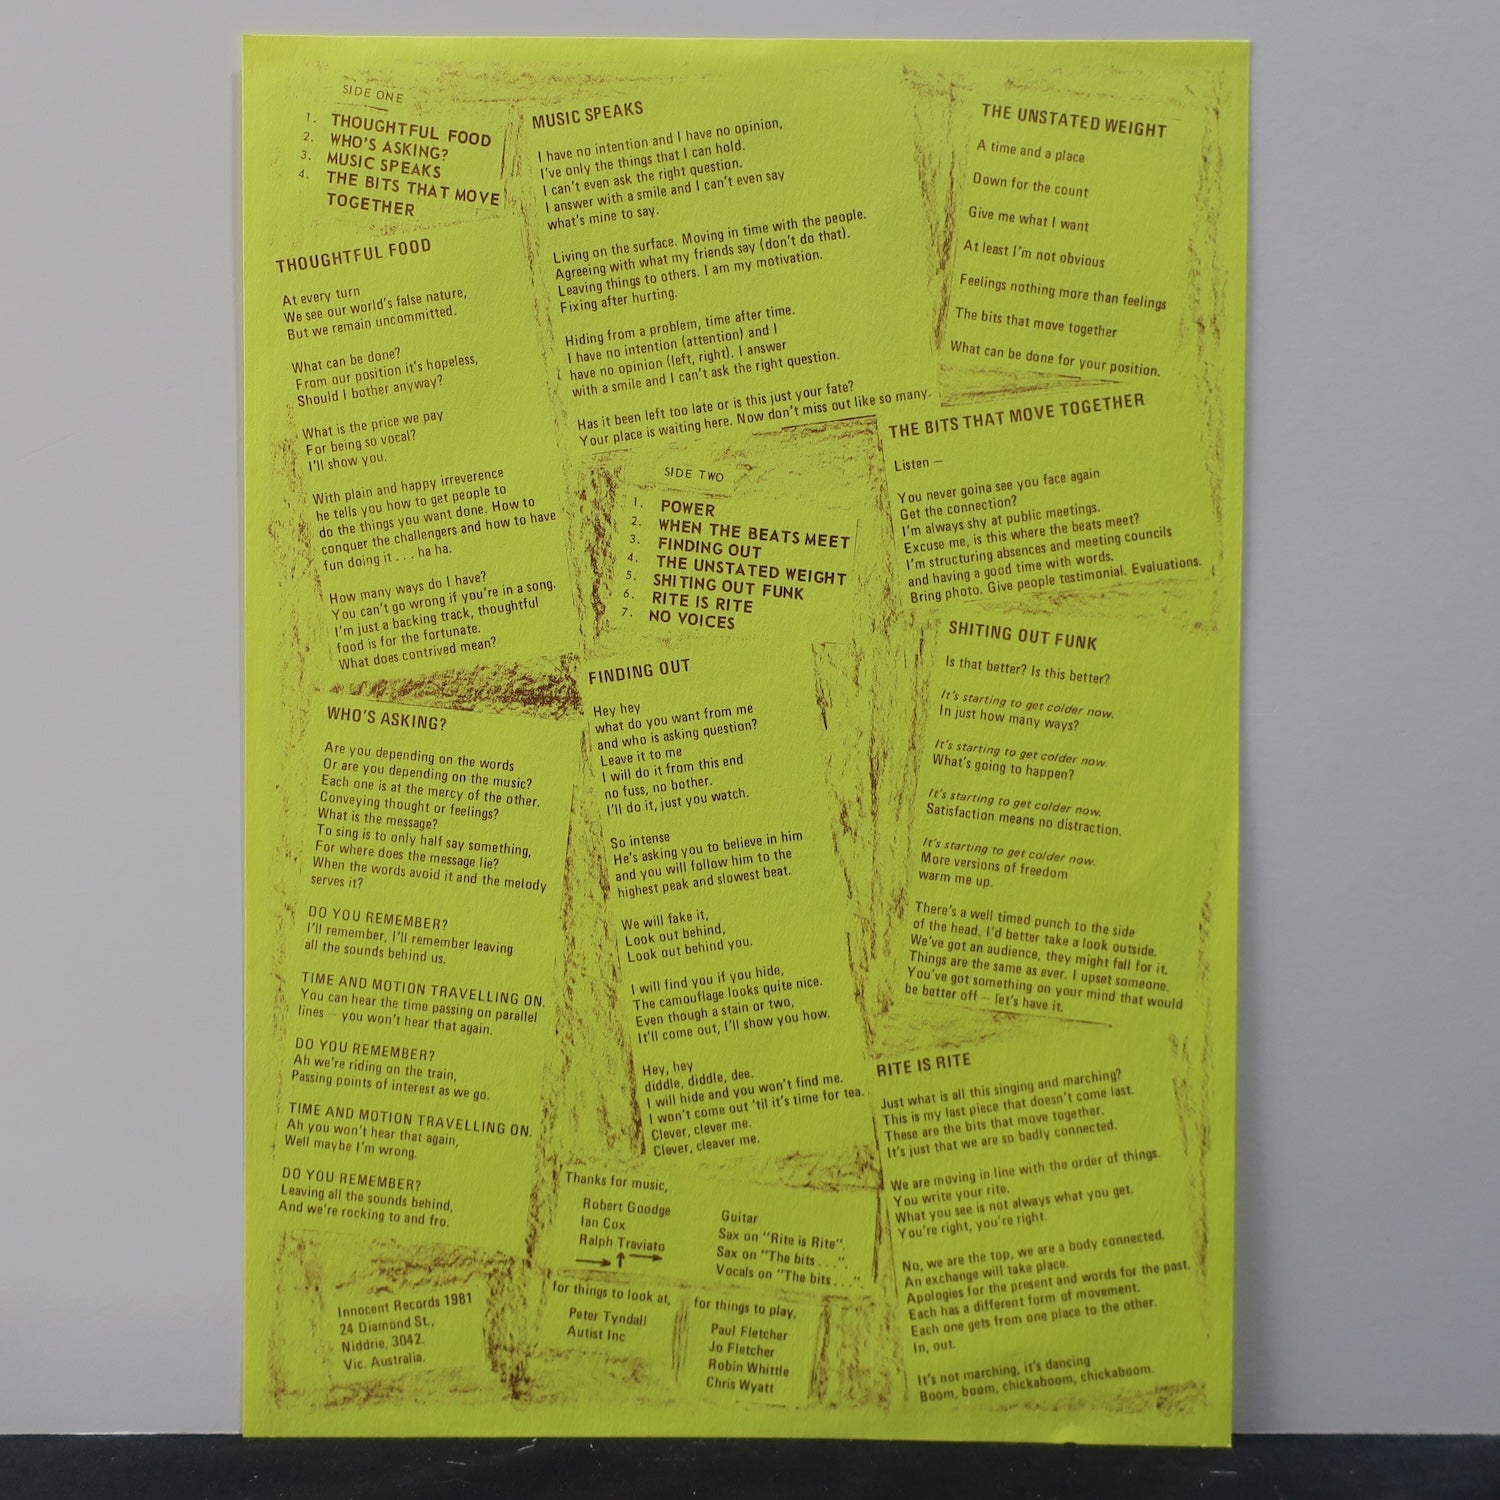 SIDE ONE
1. THOUGHTFUL FOOD
2. WHO'S ASKING?
3. MUSIC SPEAKS
4. THE BITS THAT MOVE
TOGETHER
THOUGHTFUL FOOD
At every turn
We see our world's false nature,
But we remain uncommitted.
What can be done?
From our position it's hopeless,
Should I bother anyway?
What is the price we pay
For being so vocal?
I'll show you.
With plain and happy irreverence
he tells you how to get people to
do the things you want done. How to
conquer the challengers and how to have
fun doing it . . . ha ha.
How many ways do I have?
You can't go wrong if you're in a song.
I'm just a backing track, thoughtful
food is for the fortunate.
What does contrived mean?
WHO'S ASKING?
Are you depending on the words
Or are you depending on the music?
Each one is at the mercy of the other.
Conveying thought or feelings?
What is the message?
To sing is to only half say something,
For where does the message lie?
When the words avoid it and the melody
serves it?
DO YOU REMEMBER?
I'll remember, I'll remember leaving
all the sounds behind us.
TIME AND MOTION TRAVELLING ON.
You can hear the time passing on parallel
lines — you won't hear that again.
DO YOU REMEMBER?
Ah we're riding on the train,
Passing points of interest as we go.
TIME AND MOTION TRAVELLING ON.
Ah you won't hear that again,
Well maybe I'm wrong.
DO YOU REMEMBER?
Leaving all the sounds behind,
And we're rocking to and fro.
Innocent Records 1981
24 Diamond St.,
Niddrie, 3042.
Vic. Australia.
MUSIC SPEAKS
I have no intention and I have no opinion,
I've only the things that I can hold.
I can't even ask the right question.
I answer with a smile and I can't even say
what's mine to say.
Living on the surface. Moving in time with the people.
Agreeing with what my friends say (don't do that).
Leaving things to others. I am my motivation.
Fixing after hurting.
Hiding from a problem, time after time.
I have no intention (attention) and I
have no opinion (left, right). I answer
with a smile and I can't ask the right question.
Has it been left too late or is this just your fate?
Your place is waiting here. Now don't miss out like so many.
SIDE TWO
1. POWER
2. WHEN THE BEATS MEET
3. FINDING OUT
4. THE UNSTATED WEIGHT
5. SHITING OUT FUNK
6. RITE IS RITE
7. NO VOICES
FINDING OUT
Hey hey
what do you want from me
and who is asking question?
Leave it to me
I will do it from this end
no fuss, no bother.
I'll do it, just you watch.
So intense
He's asking you to believe in him
and you will follow him to the
highest peak and slowest beat.
We will fake it,
Look out behind,
Look out behind you.
I will find you if you hide,
The camouflage looks quite nice.
Even though a stain or two,
It'll come out, I'll show you how.
Hey, hey
diddle, diddle, dee.
I will hide and you won't find me.
I won't come out 'til it's time for tea.
Clever, clever me.
Clever, cleaver me.
Thanks for music,
Robert Goodge Guitar
Ian Cox Sax on "Rite is Rite".
Ralph Traviato Sax on "The bits . . .".
Vocals on "The bits . . .".
for things to look at,
Peter Tyndall
Autist Inc
for things to play,
Paul Fletcher
Jo Fletcher
Robin Whittle
Chris Wyatt
THE UNSTATED WEIGHT
A time and a place
Down for the count
Give me what I want
At least I'm not obvious
Feelings nothing more than feelings
The bits that move together
What can be done for your position.
THE BITS THAT MOVE TOGETHER
Listen —
You never goina see you face again
Get the connection?
I'm always shy at public meetings.
Excuse me, is this where the beats meet?
I'm structuring absences and meeting councils
and having a good time with words.
Bring photo. Give people testimonial. Evaluations.
SHITING OUT FUNK
Is that better? Is this better?
It's starting to get colder now.
In just how many ways?
It's starting to get colder now.
What's going to happen?
It's starting to get colder now.
Satisfaction means no distraction.
It's starting to get colder now.
More versions of freedom
warm me up.
There's a well timed punch to the side
of the head. I'd better take a look outside.
We've got an audience, they might fall for it.
Things are the same as ever. I upset someone.
You've got something on your mind that would
be better off — let's have it.
RITE IS RITE
Just what is all this singing and marching?
This is my last piece that doesn't come last.
These are the bits that move together.
It's just that we are so badly connected.
We are moving in line with the order of things.
You write your rite.
What you see is not always what you get.
You're right, you're right.
No, we are the top, we are a body connected.
An exchange will take place.
Apologies for the present and words for the past.
Each has a different form of movement.
Each one gets from one place to the other.
In, out.
It's not marching, it's dancing
Boom, boom, chickaboom, chickaboom.